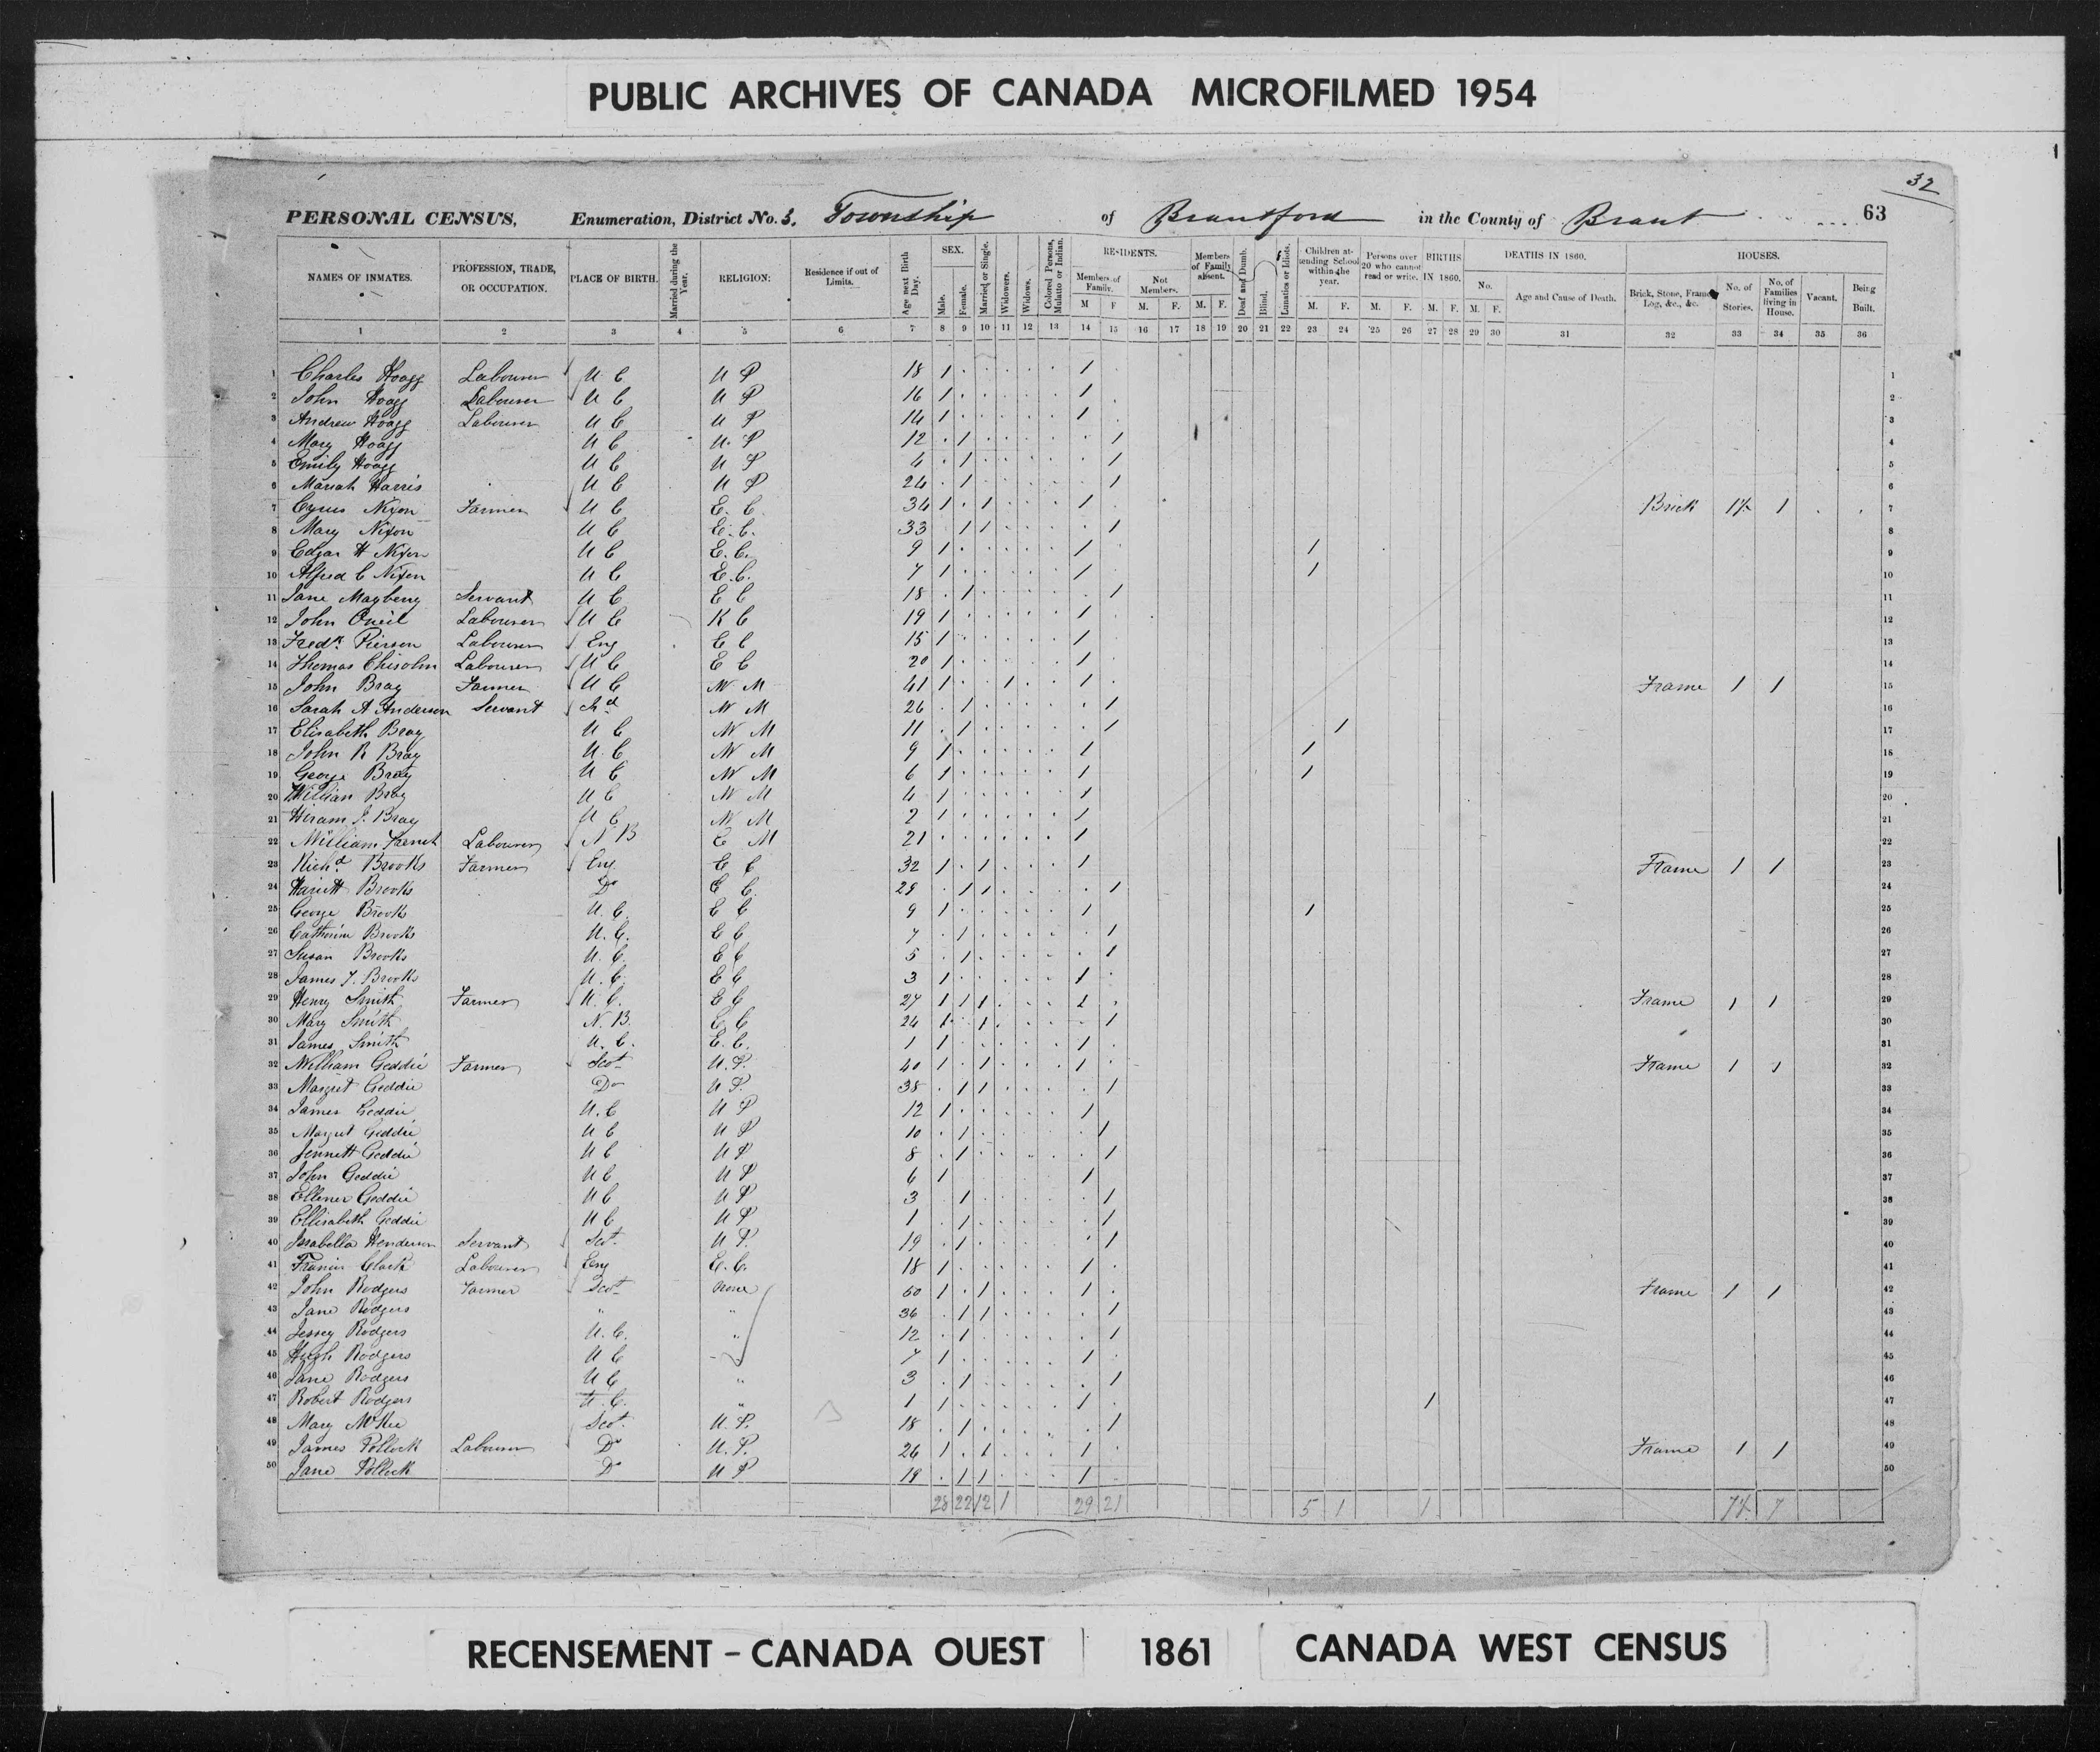 PUBLIC ARCHIVES OF CANADA MICROFILMED 1954
32
PERSONAL CENSUS, Enumeration, District No. 3. Township of Brantford in the County of Brant 63
NAMES OF INMATES. PROFESSION, TRADE, OR OCCUPATION. PLACE OF BIRTH. Married during the Year. RELIGION: Residence if out of Limits. Age next Birth Day. SEX. Male. Female. Married or Single. Widowers. Widows. Colored Persons, Mulatto or Indian. RESIDENTS. Members of Family. M F Not Members. M. F. Members of Family absent. M. F. Deaf and Dumb. Blind. Lunatics or Idiots. Children attending School within the year. M. F. Persons over 20 who cannot read or write. M. F. BIRTHS IN 1860. M. F. DEATHS IN 1860. No. M. F. Age and Cause of Death. HOUSES. Brick, Stone, Frame, Log, &c., &c. No. of Stories. No. of Families living in House. Vacant. Being Built.
1 2 3 4 5 6 7 8 9 10 11 12 13 14 15 16 17 18 19 20 21 22 23 24 25 26 27 28 29 30 31 32 33 34 35 36
1 Charles Hoagg Labourer U C U P 18 1 1 1
2 John Hoagg Labourer U C U P 16 1 1 2
3 Andrew Hoagg Labourer U C U P 14 1 1 3
4 Mary Hoagg U C U. P 12 1 1 4
5 Emily Hoagg U C U P 4 1 1 5
6 Mariah Harris U C U P 24 1 1 6
7 Cyrus Nixon Farmer U C E. C. 34 1 1 1 Brick 1½ 1 7
8 Mary Nixon U C E. C. 33 1 1 1 8
9 Edgar H Nixon U C E. C. 9 1 1 1 9
10 Alfred C Nixon U C E. C. 7 1 1 1 10
11 Jane Mayberry Servant U C E C 18 1 1 11
12 John Oneil Labourer U C R C 19 1 1 12
13 Fredk. Pierson Labourer Eng E C 15 1 1 13
14 Thomas Chisolm Labourer U C E C 20 1 1 14
15 John Bray Farmer U C W M 41 1 1 1 Frame 1 1 15
16 Sarah A Anderson Servant W M 26 1 1 16
17 Elisabeth Bray U C W M 11 1 1 1 17
18 John R Bray U. C W M 9 1 1 1 18
19 George Bray U C W M 6 1 1 1 19
20 William Bray U C W M 4 1 1 20
21 Hiram J. Bray U C W M 2 1 1 21
22 William Labourer N B E M 21 1 22
23 Richd. Brooks Farmer Eng E C 32 1 1 1 Frame 1 1 23
24 Hariett Brooks Do E C. 28 1 1 1 24
25 George Brooks U. C. E C 9 1 1 1 25
26 Catherine Brooks U. C. E C 7 1 1 26
27 Susan Brooks U. C. E C 5 1 1 27
28 James J. Brooks U. C. E C 3 1 1 28
29 Henry Smith Farmer U. C. E C 27 1 1 1 1 Frame 1 1 29
30 Mary Smith N. B. E C 24 1 1 1 30
31 James Smith U. C. E. C. 1 1 1 31
32 William Geddie Farmer Scot U. P. 40 1 1 1 Frame 1 1 32
33 Margret Geddie Do U P. 38 1 1 1 33
34 James Geddie U. C U P 12 1 1 34
35 Margret Geddie U C U P 10 1 1 35
36 Jennett Geddie U C U P 8 1 1 36
37 John Geddie U C U P 6 1 1 37
38 Ellener Geddie U C U P 3 1 1 38
39 Ellisabeth Geddie U C U P 1 1 1 39
40 Issabella Henderson Servant Scot. U P. 19 1 1 40
41 Francis Clark Labourer Eng E. C. 18 1 1 41
42 John Rodgers Farmer Scot None 50 1 1 1 Frame 1 1 42
43 Jane Rodgers " " 36 1 1 1 43
44 Jessey Rodgers U. C. " 12 1 1 44
45 Hugh Rodgers U C " 7 1 1 45
46 Jane Rodgers U C " 3 1 1 46
47 Robert Rodgers U. C. " 1 1 1 1 47
48 Mary McKee Scot. U. P. 18 1 1 48
49 James Pollock Labourer Do U. P. 26 1 1 1 Frame 1 1 49
50 Jane Pollock Do U P 19 1 1 1 50
28 22 12 1 29 21 5 1 1 7½ 7
RECENSEMENT - CANADA OUEST 1861 CANADA WEST CENSUS